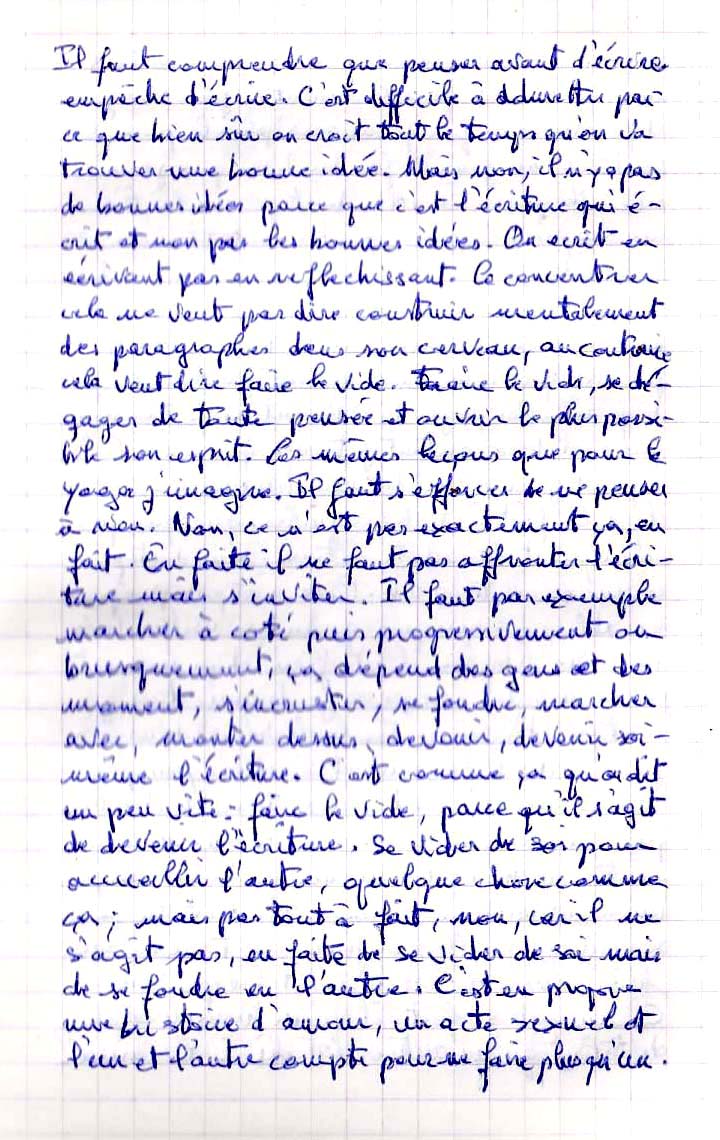 Il faut comprendre que penser avant d'écrire
empêche d'écrire. C'est difficile à admettre par
ce que bien sûr on croit tout le temps qu'on va
trouver une bonne idée. Mais non, il n'y a pas
de bonnes idées parce que c'est l'écriture qui é-
crit et non pas les bonnes idées. On écrit en
écrivant pas en reflechissant. Se concentrer
cela ne veut pas dire construire mentalement
des paragraphes dans son cerveau, au contraire
cela veut dire faire le vide. Faire le vide, se dé-
gager de toute pensée et ouvrir le plus possi-
ble son esprit. Les mêmes leçons que pour le
yoga j'imagine. Il faut s'efforcer de ne penser
à rien. Non, ce n'est pas exactement ça, en
fait. En faite il ne faut pas affronter l'écri-
ture mais s'inviter. Il faut par exemple
marcher à coté puis progressivement ou
brusquement, ça dépend des gens et des
moment, s'incruster, se fondre, marcher
avec, monter dessus, devenir, devenir soi-
même l'écriture. C'est comme ça qu'on dit
un peu vite : faire le vide, parce qu'il s'agit
de devenir l'écriture. Se vider de soi pour
accueillir l'autre, quelque chose comme
ça ; mais pas tout à fait, non, car il ne
s'agit pas, en faite de se vider de soi mais
de se fondre en l'autre. C'est en propre
une histoire d'amour, un acte sexuel et
l'un et l'autre compte pour ne faire plus qu'un.